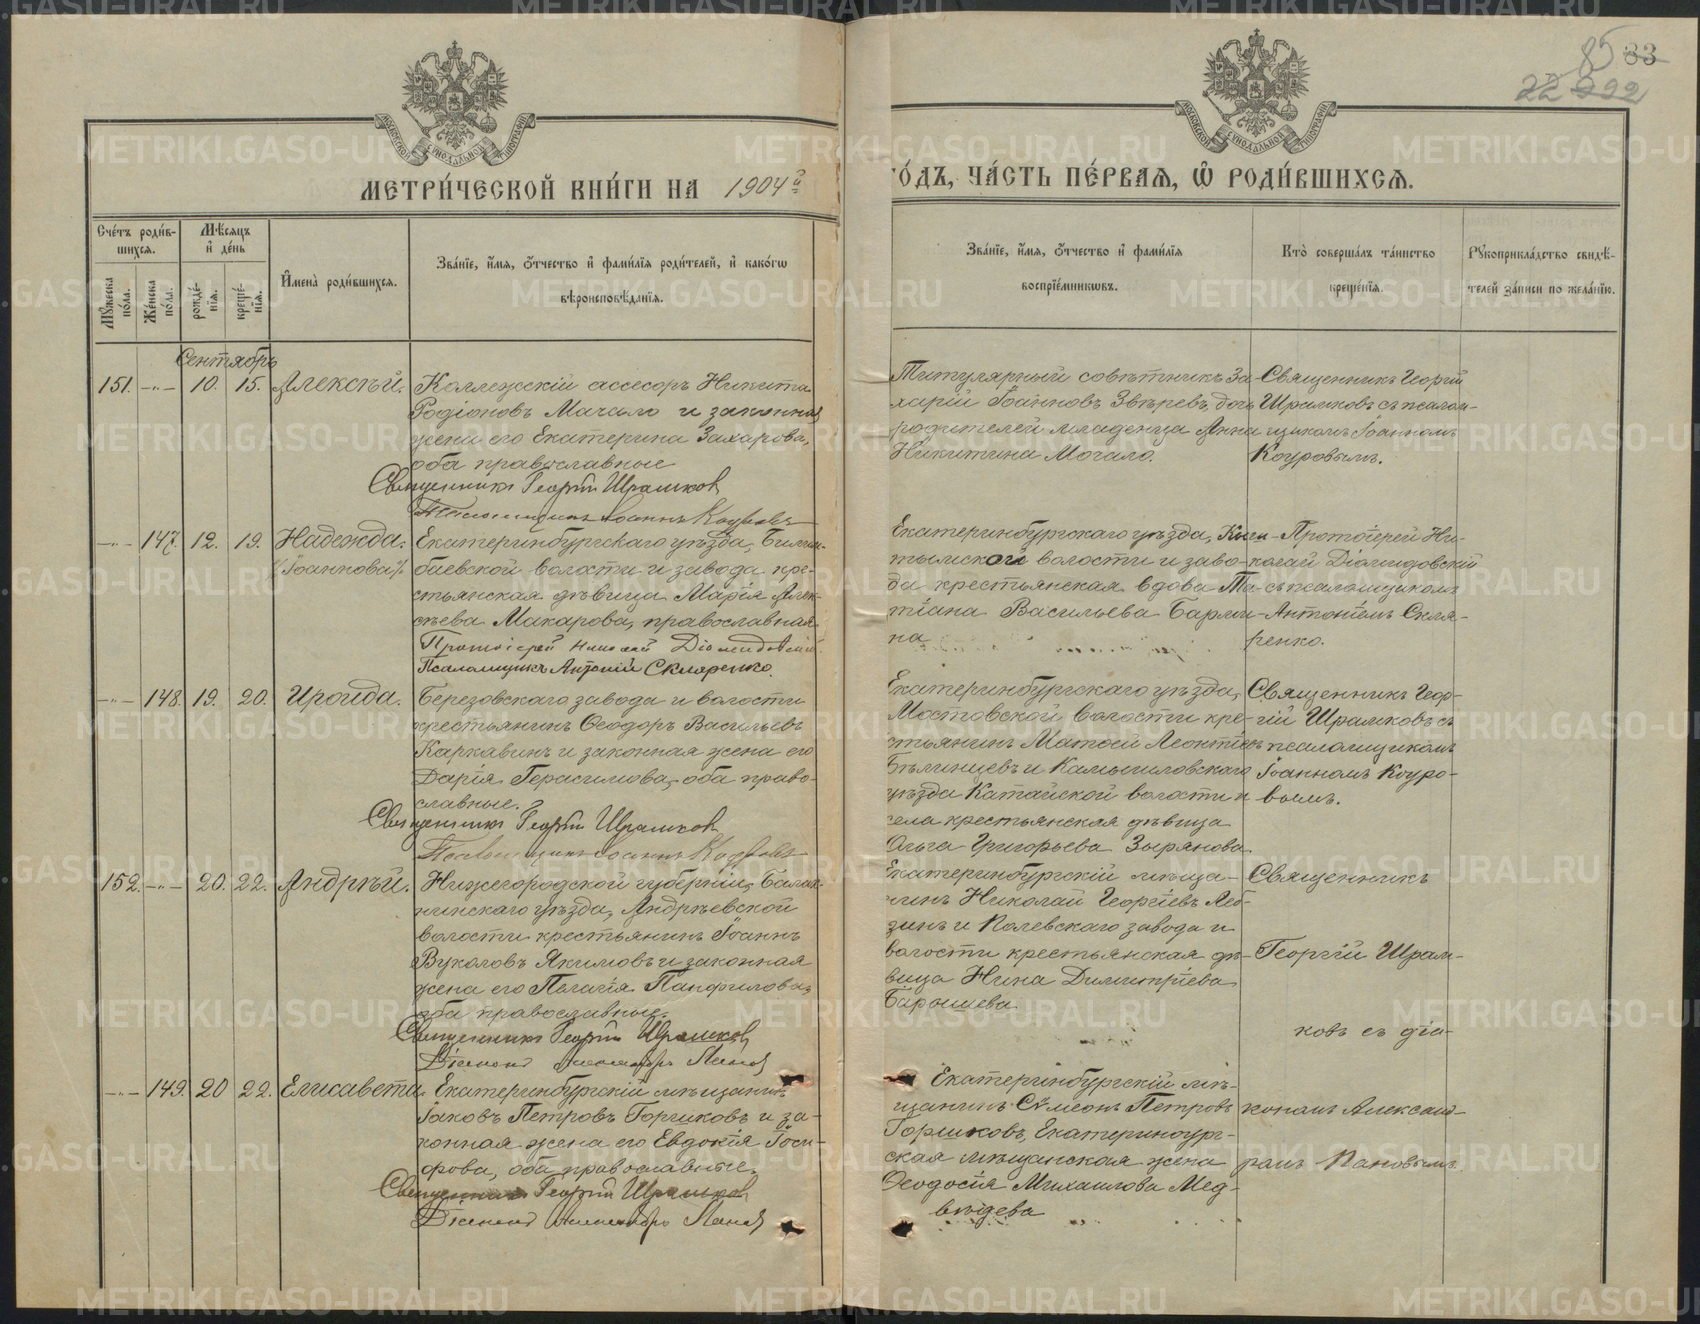 85 33
22 292
МОСКОВСКОЙ СѴНОДАЛЬНОЙ ТИПОГРАФІИ
МОСКОВСКОЙ СѴНОДАЛЬНОЙ ТИПОГРАФІИ
МЕТРИ́ЧЕСКОЙ КНИ́ГИ НА 1904й
ГО́ДЪ, ЧА́СТЬ ПЕ́РВАѦ, Ѿ РОДИ́ВШИХСѦ.
Сче́тъ роди́в-
шихсѧ.
Мꙋ́жеска по́ла.
Же́нска по́ла.
Мѣ́сѧцъ и҆ де́нь
рожде́-нїѧ.
креще́-нїѧ.
И҆мена̀ роди́вшихсѧ.
Зва́нїе, и҆́мѧ, ѻ҆́тчество и҆ фами́лїѧ роди́телей, и҆ како́гѡ
вѣроисповѣ́данїѧ.
Зва́нїе, и҆́мѧ, ѻ҆́тчество и҆ фами́лїѧ
воспрїе́мникѡвъ.
Кто̀ соверша́лъ та́инство
креще́нїѧ.
Рꙋкоприкла́дство свидѣ́-
телей за́писи по жела́нїю.
Сентябрь
151. —"— 10. 15. Алексѣй.
Коллежскій ассесоръ Никита
Родіоновъ Мачало и законная
жена его Екатерина Захарова,
оба православные
Священникъ Георгій Шрамковъ
Псаломщикъ Іоаннъ Коуровъ
Титулярный совѣтникъ За-
харій Іоанновъ Звѣревъ, дочь
родителей младенца Анна
Никитина Мочало.
Священникъ Георгій
Шрамковъ съ псалом-
щикомъ Іоанномъ
Коуровымъ.
—"— 147. 12. 19. Надежда.
(Іоаннова).
Екатеринбургскаго уѣзда, Билим-
баевской волости и завода кре-
стьянская дѣвица Марія Алек-
сѣева Макарова, православная
Протоіерей Николай Діомидовскій.
Псаломщикъ Антоній Скляренко.
Екатеринбургскаго уѣзда, Кын-
тымской волости и заво-
да крестьянская вдова Та-
тіана Васильева Барми-
на
Протоіерей Ни-
колай Діомидовскій
съ псаломщикомъ
Антоніемъ Скля-
ренко.
—"— 148. 19. 20. Ироида.
Березовскаго завода и волости
крестьянинъ Ѳеодоръ Васильевъ
Каркавинъ и законная жена его
Дарія Герасимова, оба право-
славные.
Священникъ Георгій Шрамковъ
Псаломщикъ Іоаннъ Коуровъ
Екатеринбургскаго уѣзда,
Мостовской волости кре-
стьянинъ Матѳей Леонтіевъ
Бѣлинцевъ и Камышловскаго
уѣзда Катайской волости и
села крестьянская дѣвица
Ольга Григорьева Зырянова.
Священникъ Геор-
гій Шрамковъ съ
псаломщикомъ
Іоанномъ Коуро-
вымъ.
152. —"— 20. 22. Андрѣй.
Нижегородской губерніи, Балах-
нинскаго уѣзда, Андрѣевской
волости крестьянинъ Іоаннъ
Вуколовъ Якимовъ и законная
жена его Пелагія Панфилова,
оба православные.
Священникъ Георгій Шрамковъ
Діаконъ Александръ Пановъ
Екатеринбургскій мѣща-
нинъ Николай Георгіевъ Леб-
зинъ и Полевскаго завода и
волости крестьянская дѣ-
вица Нина Димитріева
Барышева
Священникъ
Георгій Шрам-
ковъ съ діа-
—"— 149. 20 22. Елисавета.
Екатеринбургскій мѣщанинъ
Іаковъ Петровъ Горшковъ и за-
конная жена его Евдокія Іоси-
фова, оба православные.
Священникъ Георгій Шрамковъ
Діаконъ Александръ Пановъ
Екатеринбургскій мѣ-
щанинъ Сѵмеонъ Петровъ
Горшковъ, Екатеринбург-
ская мѣщанская жена
Ѳеодосія Михаилова Мед-
вѣдева
кономъ Алексан-
ромъ Пановымъ.
METRIKI.GASO-URAL.RU